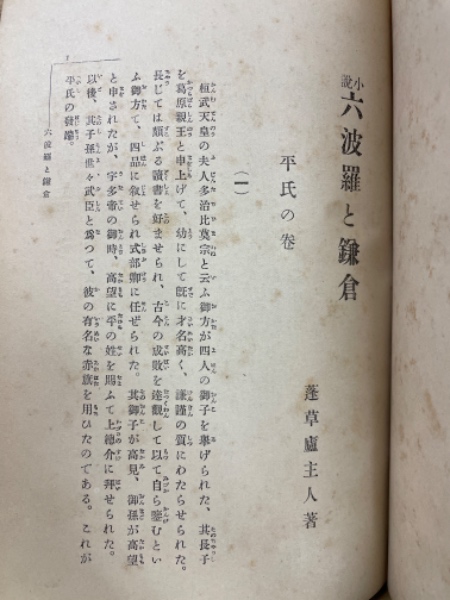 小説 六波羅と鎌倉
蓬草廬主人著
平氏の巻
（一）
桓武天皇の夫人多治比莫宗と云ふ御方が四人の御子を擧げられた、其長子
を葛原親王と申上げて、幼にして既に才名高く、謙謹の質にわたらせられた。
長じては頗ぶる讀書を好ませられ、古今の成敗を達觀して以て自ら鑒むとい
ふ御方で、四品に敍せられ式部卿に任ぜられた。其御子が高見、御孫が高望
と申されたが、宇多帝の御時、高望に平の姓を賜ふて上總介に拜せられた。
以後、其子孫世々武臣と爲つて、彼の有名な赤旗を用ひたのである。これが
平氏の發端。
六波羅と鎌倉